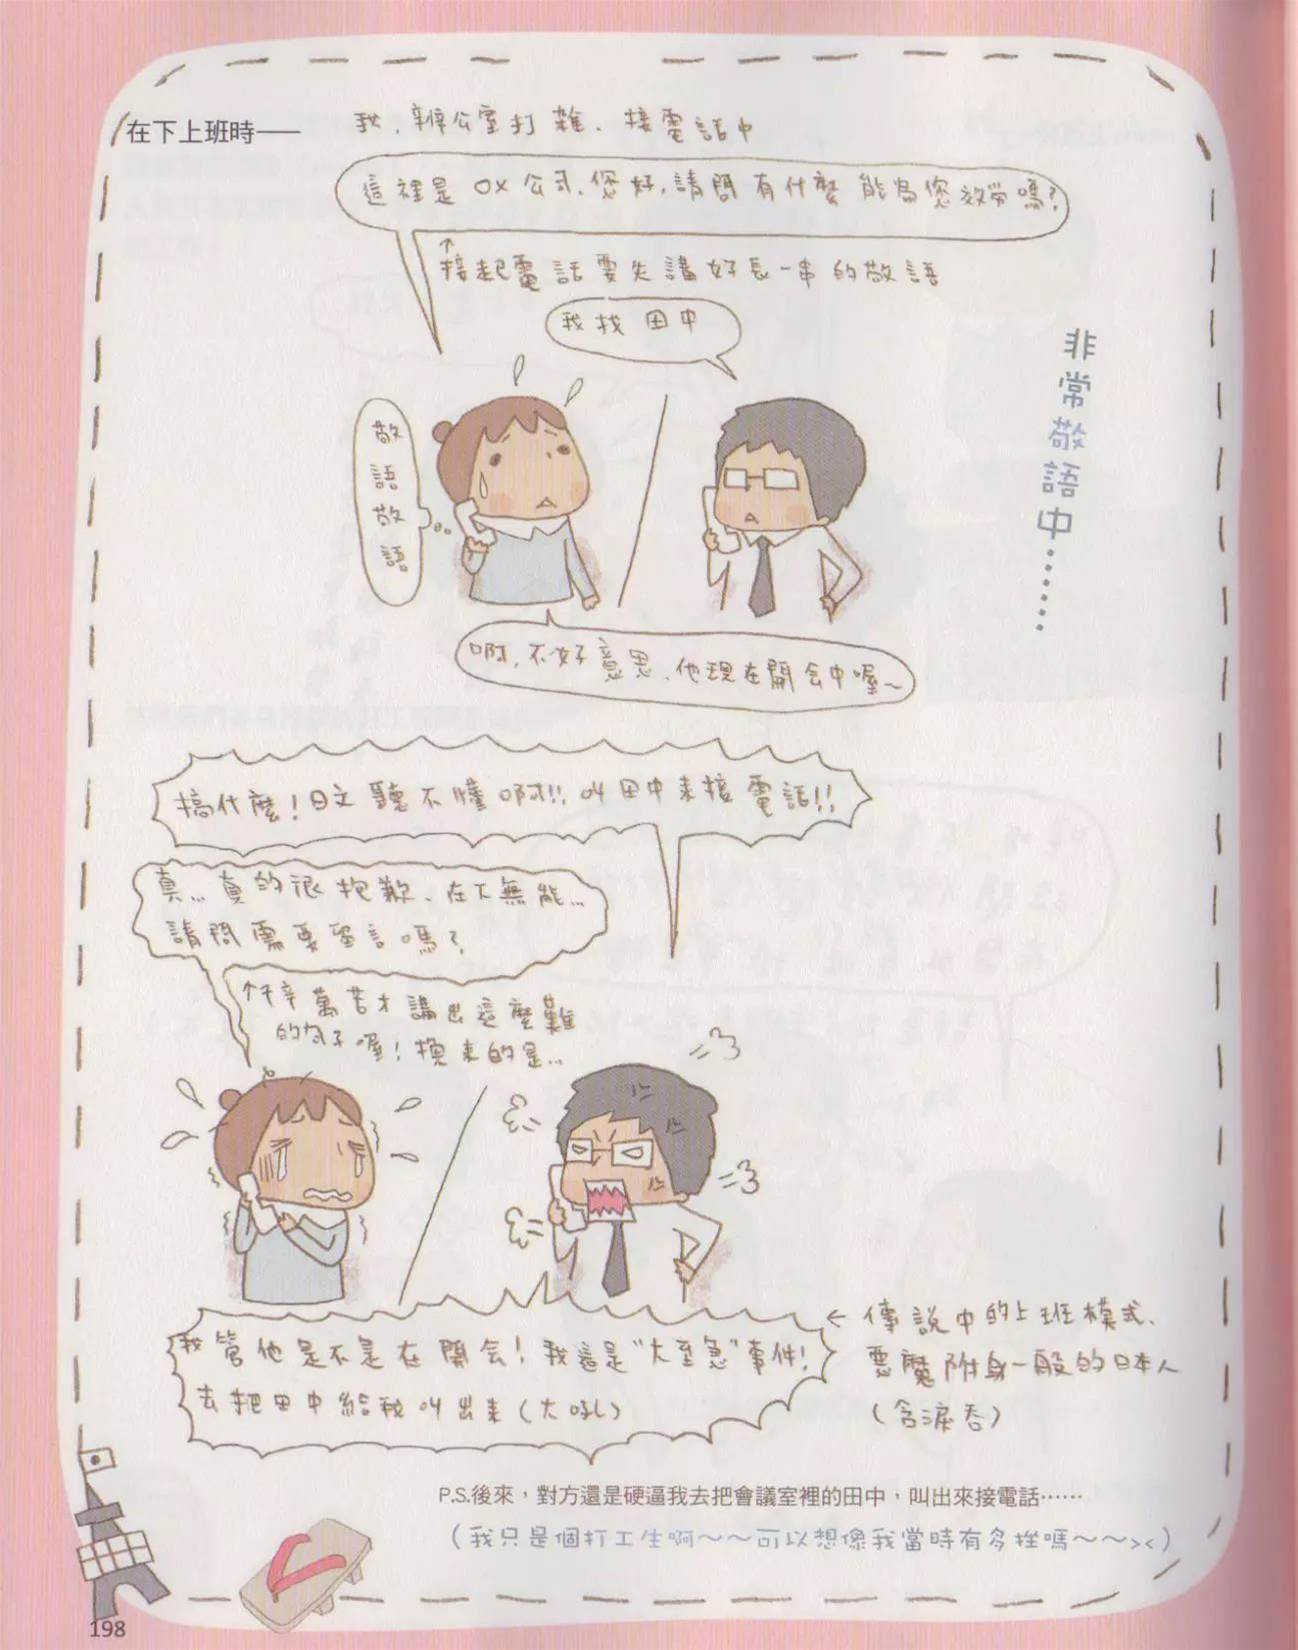 在下上班時——
我，辦公室打雜、接電話中
這裡是OX公司，您好，請問有什麼能為您效勞嗎？
↑接起電話要先講好長一串的敬語
我找田中
非常敬語中……
敬語敬語
啊，不好意思，他現在開会中喔～
搞什麼！日文聽不懂啊!!叫田中來接電話!!
真…真的很抱歉、在下無能…
請問需要留言嗎？
↑千辛萬苦才講出這麼難
的句子喔！換來的是…
我管他是不是在開会！我這是"大至急"事件！
去把田中給我叫出來（大吼）
←傳說中的上班模式、
惡魔附身一般的日本人
（含淚吞）
P.S.後來，對方還是硬逼我去把會議室裡的田中，叫出來接電話……
（我只是個打工生啊～～可以想像我當時有多挫嗎～～><）
198